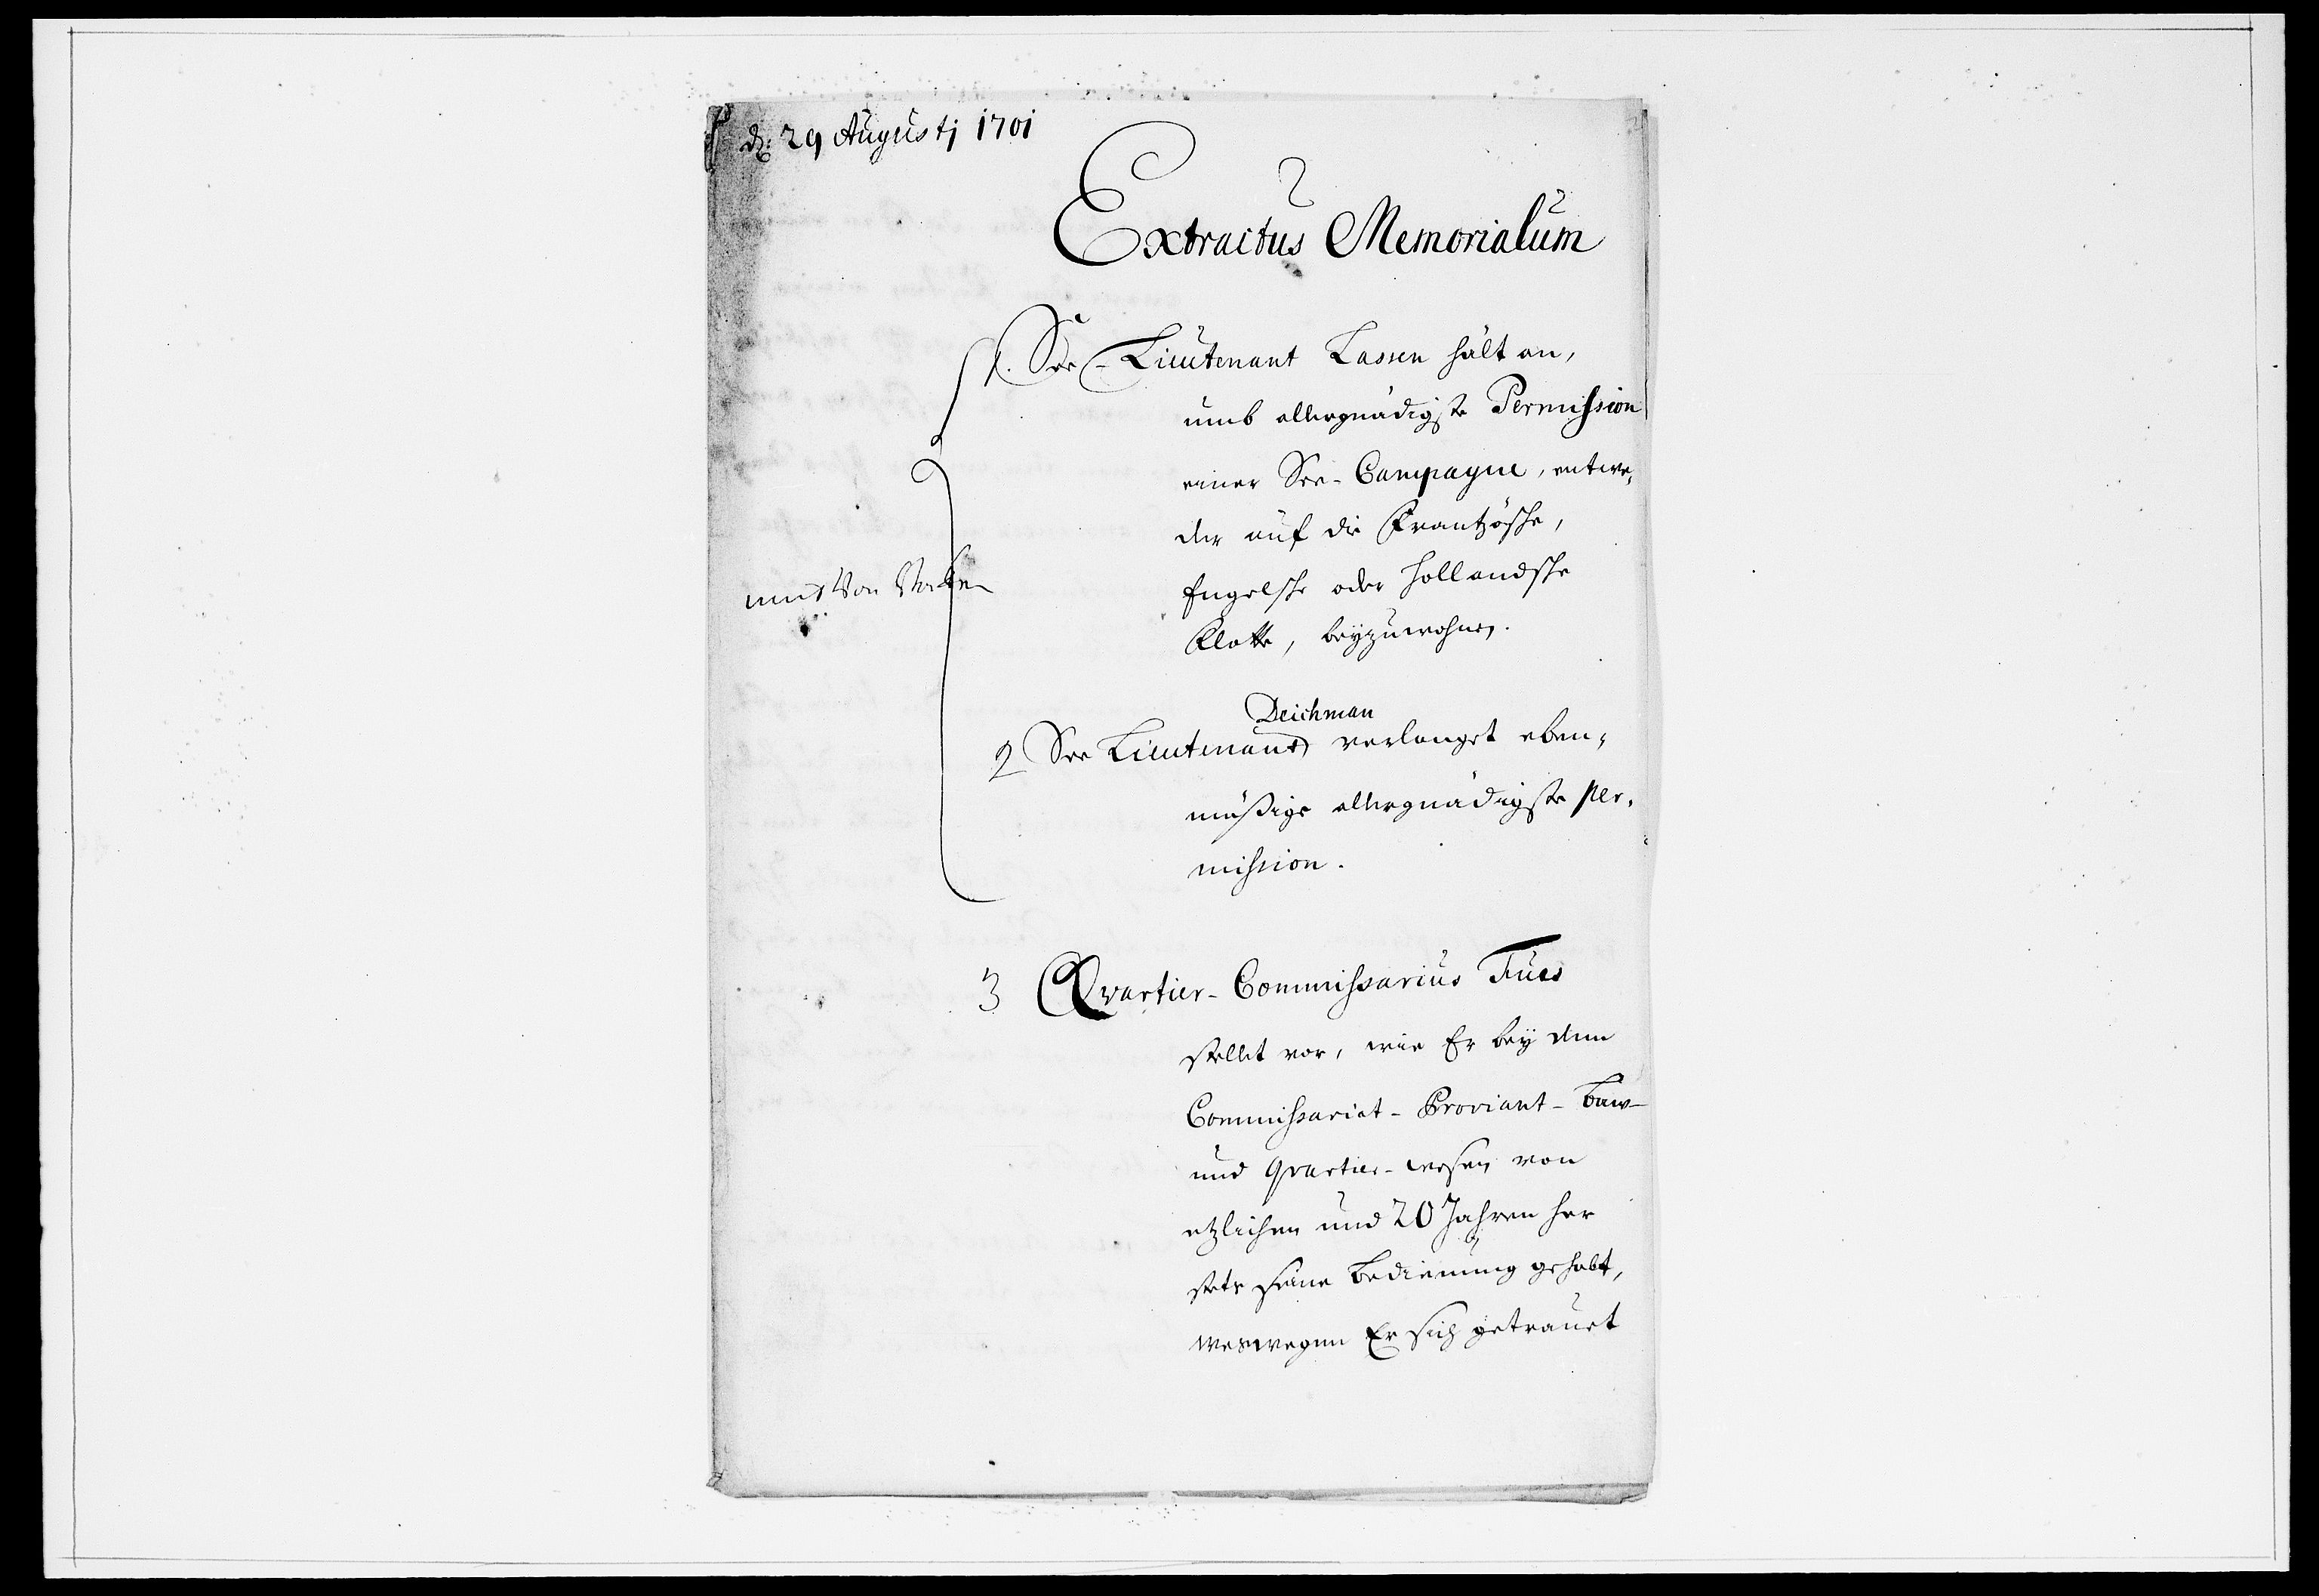 d. 29 Augustj 1701
Extractus Memorialum
1. See-Lieutenant Lassen hält an,
umb allergnädigste Permission
einer See-Campagne, entwe,
der auf die Frantzösche,
Engelsche oder Hollandsche
Flotte, beyzuwohnen.
Deichman
2 See Lieutenant verlanget eben,
mäßige allergnädigste per,
mission.
3 Qvartier-Commissarius Fues
stellet vor, wie Er bey dem
Commissariat-Proviant-Bau-
und Qvartier-wesen von
etzlichen und 20 Jahren her
stets seine Bedienung gehabt,
weswegen Er sich getrauet